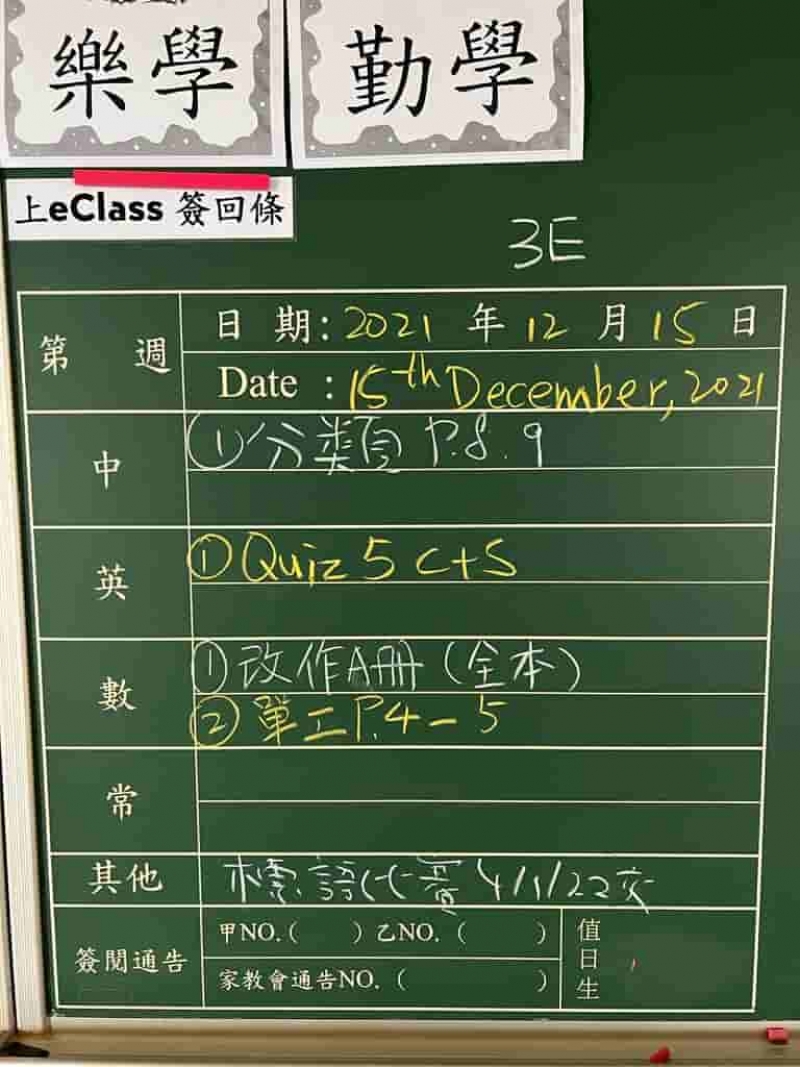 樂學
勤學
上eClass 簽回條
3E
第 週
日 期: 2021 年 12 月 15 日
Date : 15th December, 2021
中
① 分類 P.8.9
英
① Quiz 5 C+S
數
① 改作A冊 (全本)
② 單工 P.4-5
常
其他
標語比賽 4/1/22交
簽閱通告
甲NO.( ) 乙NO. ( )
家教會通告NO. ( )
值日生